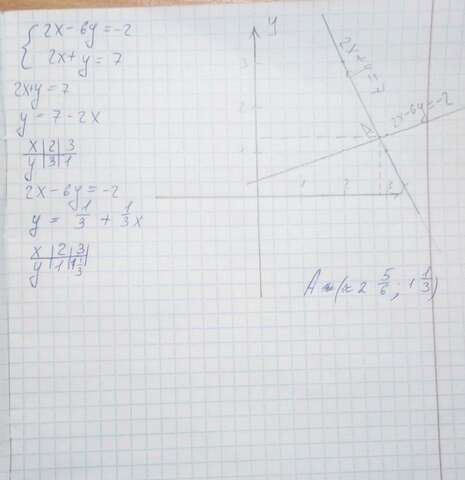 { 2x - 6y = -2
2x + y = 7
2x+y = 7
y = 7 - 2x
x | 2 | 3
y | 3 | 1
2x - 6y = -2
y = 1/3 + 1/3 x
x | 2 | 3
y | 1 | 1 1/3
y
3
2
1
1 2 3 x
2x+y=7
A
2x-6y=-2
A ≈ (≈ 2 5/6 ; 1 1/3)